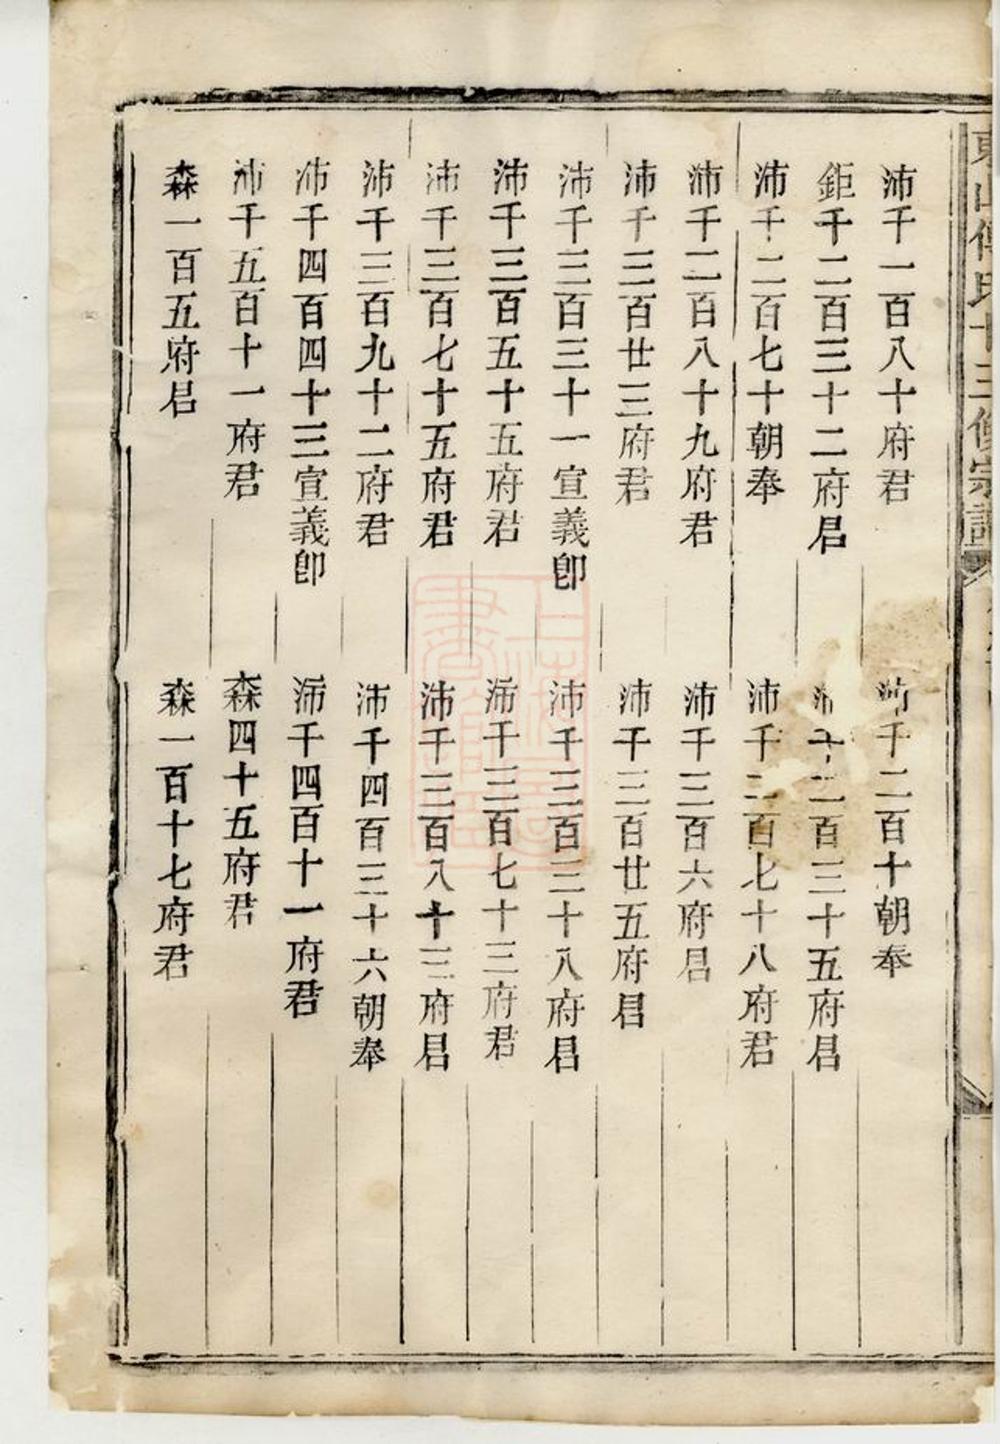 東山傅氏十三修宗譜
沛千一百八十府君 沛千二百十朝奉
鉅千二百三十二府君 沛千二百三十五府君
沛千二百七十朝奉 沛千二百七十八府君
沛千二百八十九府君 沛千三百六府君
沛千三百廿三府君 沛千三百廿五府君
沛千三百三十一宣義郎 沛千三百三十八府君
沛千三百五十五府君 沛千三百七十三府君
沛千三百七十五府君 沛千三百八十三府君
沛千三百九十二府君 沛千四百三十六朝奉
沛千四百四十三宣義郎 沛千四百十一府君
沛千五百十一府君 森四十五府君
森一百五府君 森一百十七府君